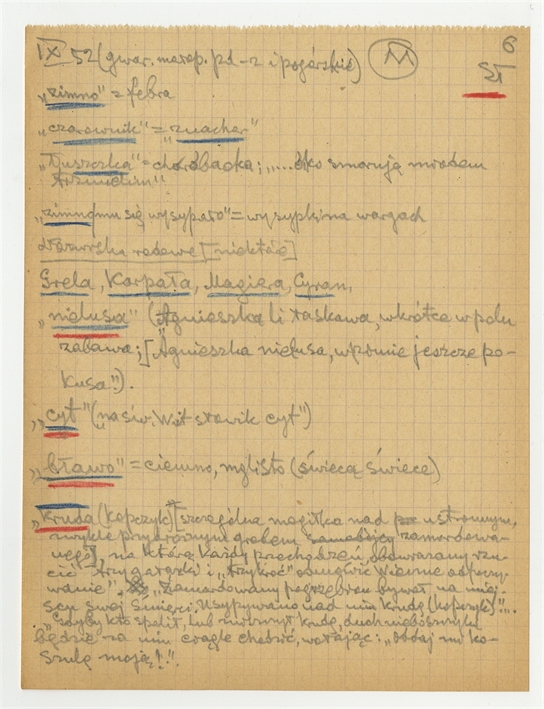 IX 52 (gwar. małop. pd-z i pogórskie) M 6
ST
„zimno" = febra
„czarownik" = „znachor"
„Duszczka" = choroba oka; „.... oko smarują miodem
trzmielim"
„zimno mu się wysypało" = wysypki na wargach
Nazwiska rodowe [niektóre]
Grela, Karpała, Magiera, Cyran,
„nielusa" („Agnieszka li łaskawa, wkrótce w polu
zabawa; [Agnieszka nielusa, w zimie jeszcze po-
kusa").
„cyt" („na św. Wit słowik cyt")
„bławo" = ciemno, mglisto (świecą świece)
„Kruda (kopczyk)" [szczególna mogiłka nad ustronnym,
zwykle przydrożnym grobem zamordowa-
nego], na którą każdy przechodzeń obowiązany rzu-
cić „trzy gałązki i „trzykroć" odmówić wieczne odpoczy-
wanie". „Zamordowany pogrzebion bywał na miej-
scu swój śmierci. Usypywano nad nim krudę (kopczyk)"...
„Gdyby kto spalił, lub zniszczył krudę, duch nieboszczyka
będzie za nim ciągle chodzić, wołając: „oddaj mi ko-
szulę moją!".